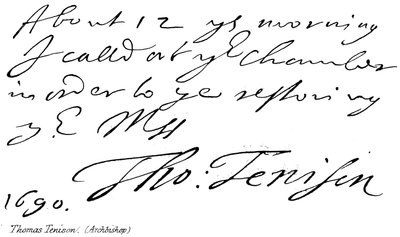 About 12 ys morning
I called at yr Chamber
in order to ye restoring
yr Mss
Tho: Tenison
1690.
Thomas Tenison. (Archbishop)